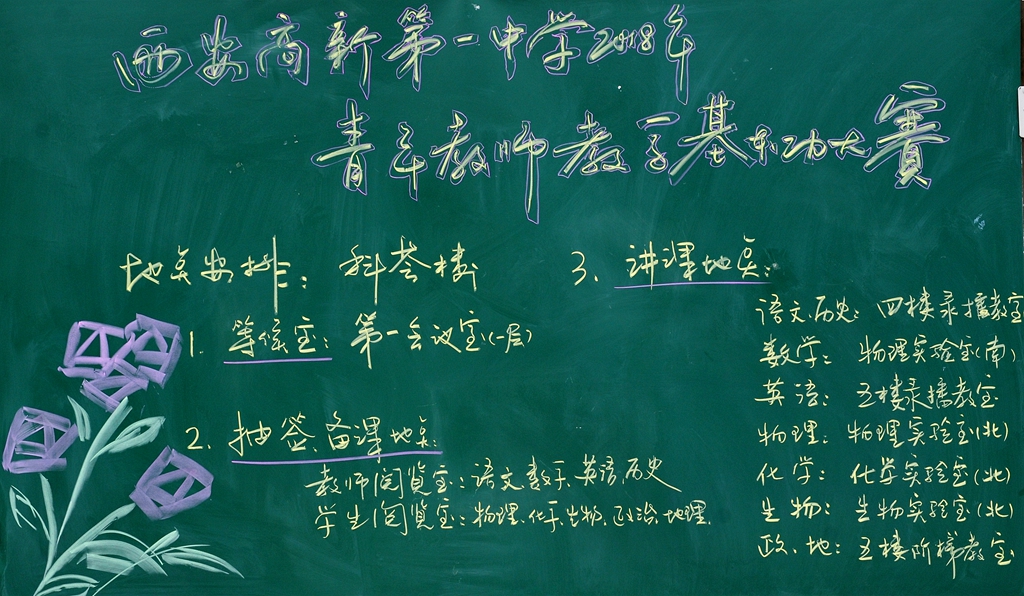 西安高新第一中学2018年
青年教师教学基本功大赛
地点安排：科荟楼
1. 等候室：第一会议室（一层）
2. 抽签、备课地点：
教师阅览室：语文、数学、英语、历史
学生阅览室：物理、化学、生物、政治、地理.
3、讲课地点：
语文、历史：四楼录播教室
数学：物理实验室（南）
英语：五楼录播教室
物理：物理实验室（北）
化学：化学实验室（北）
生物：生物实验室（北）
政、地：五楼阶梯教室